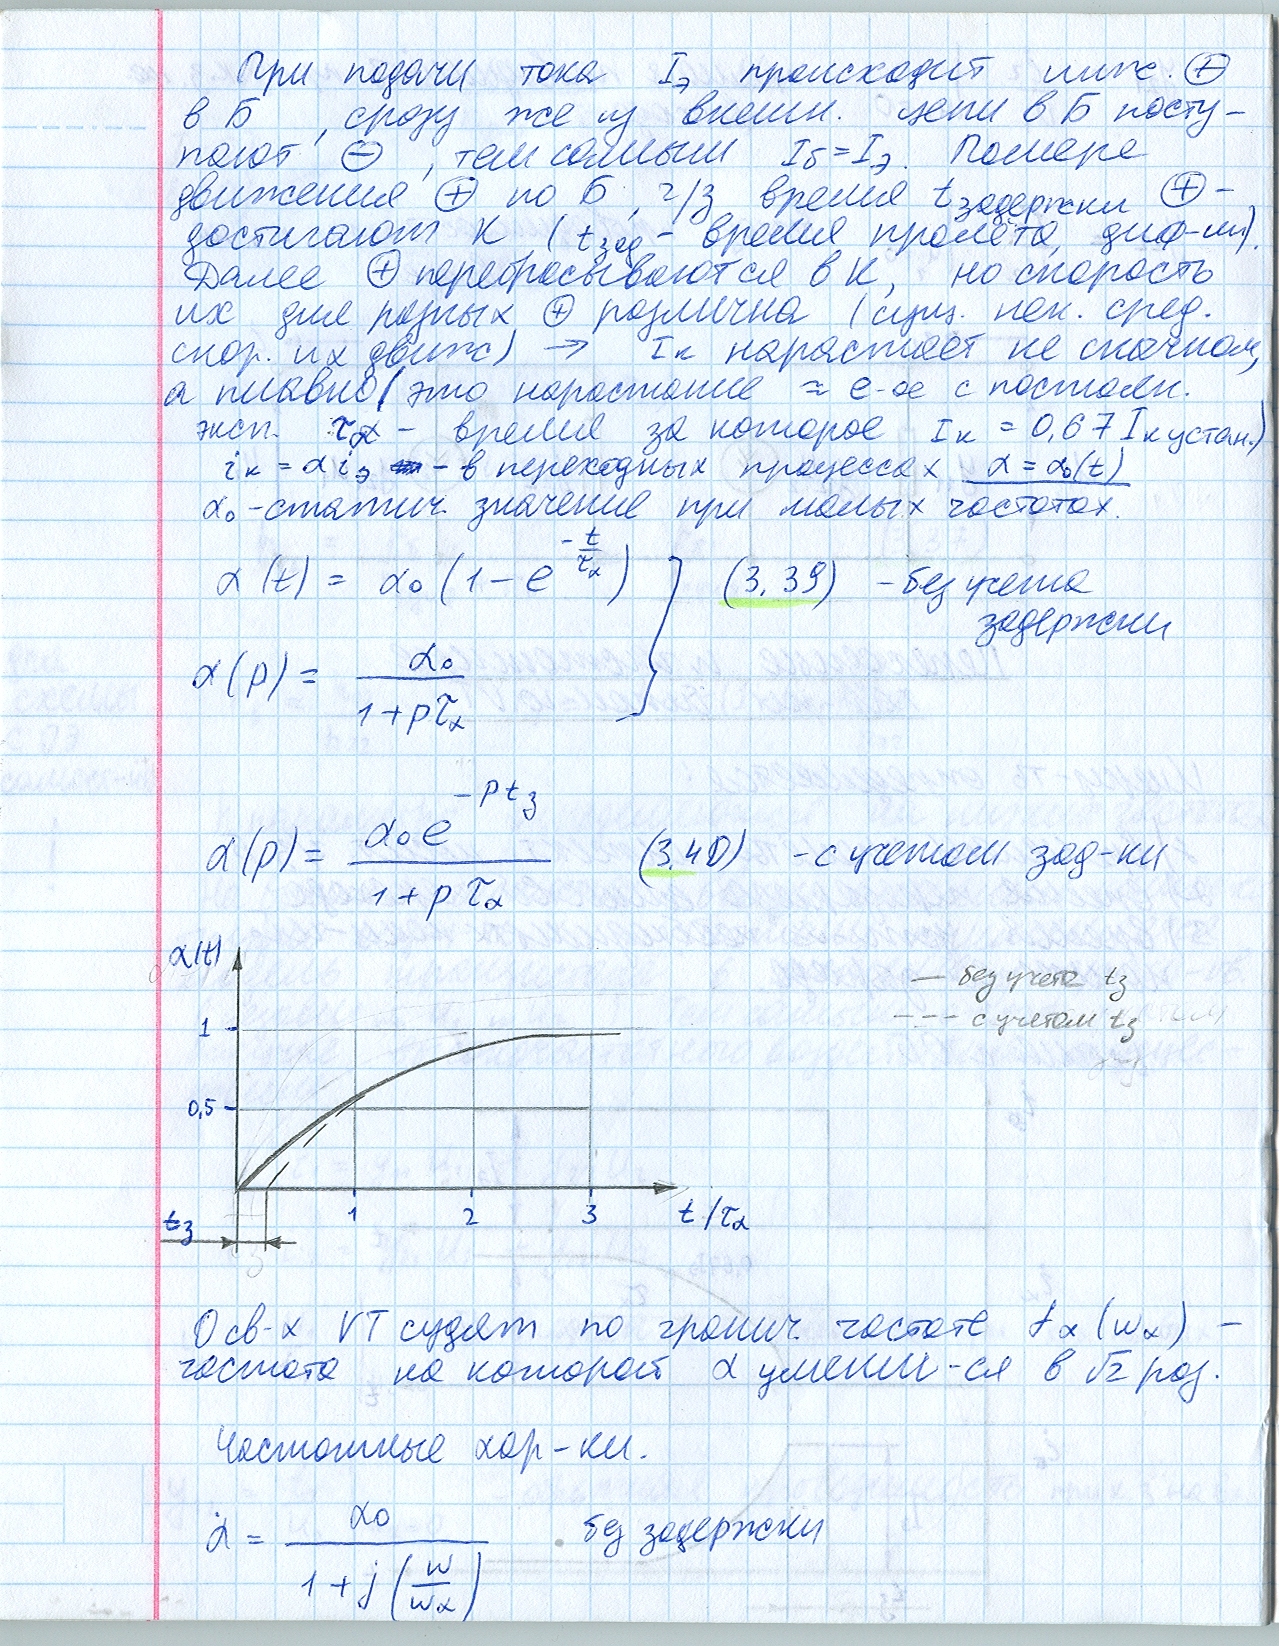 При подачи тока Iэ происходит инж. ⊕
в Б, сразу же из внешн. цепи в Б посту-
пают ⊖, тем самым Iб = Iэ. По мере
движения ⊕ по Б, ч/з время tзадержки ⊕ -
достигают К (tзад - время пролёта диф-ии).
Далее ⊕ перебрасываются в К, но скорость
их для разных ⊕ различна (сущ. нек. сред.
скор. их движ) → Iк нарастает не скачком,
а плавно (это нарастание ≈ е-ое с постоян.
эксп. τα - время за которое Iк = 0,67 Iк устан.)
iк = α iэ - в переходных процессах α = α₀(t)
α₀ - статич. значение при малых частотах.
α(t) = α₀ (1 - e^(-t/τα)) } (3,39) - без учета
задержки
α(p) = α₀ / (1 + pτα)
α(p) = α₀ e^(-ptз) / (1 + pτα) (3,40) - с учетом зад-ки
α(t)
— без учета tз
- - - с учетом tз
1
0,5
tз 1 2 3 t/τα
О св-х VT судят по гранич. частоте fα (ωα) -
частота на которой α уменьш-ся в √2 раз.
Частотные хар-ки.
α̇ = α₀ / (1 + j(ω/ωα)) без задержки